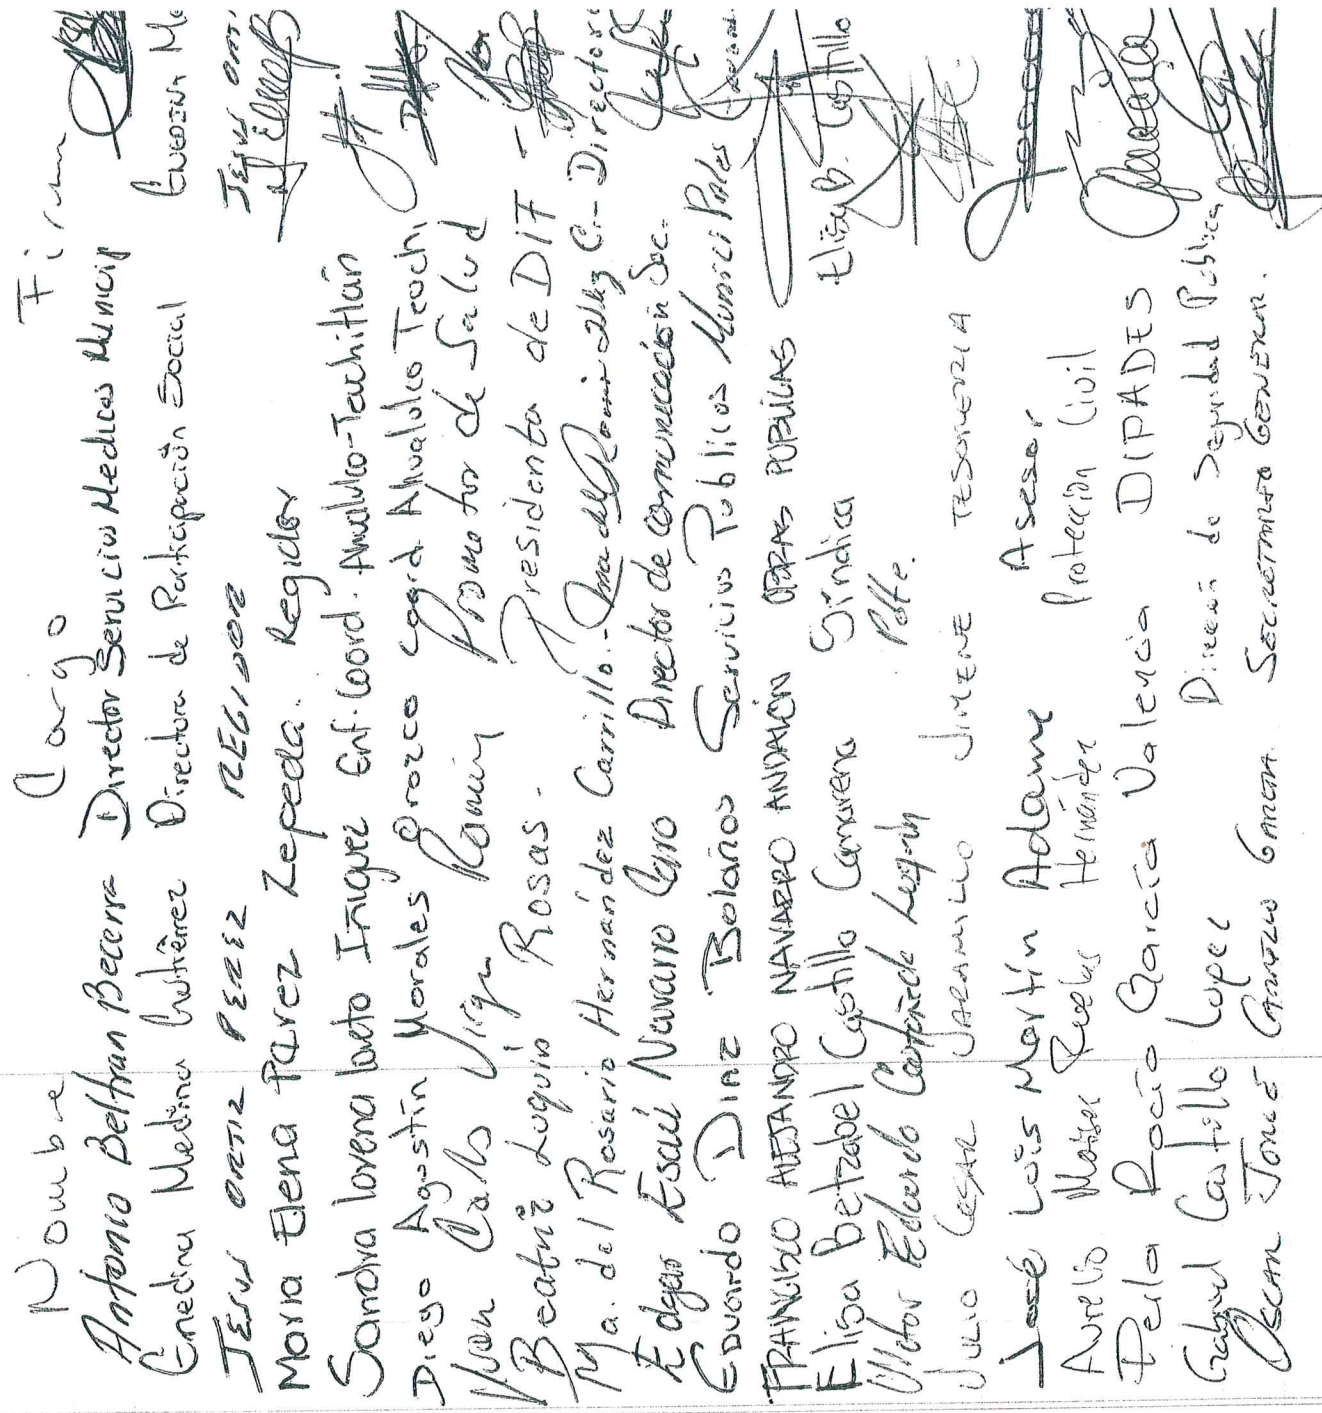 Nombre Cargo Firma
Antonio Beltran Becerra Director Servicios Medicos Municip
Enedina Medina Gutiérrez Directora de Participación Social Enedina Me
JESUS ORTIZ PEREZ REGIDOR JESUS ORTI
Maria Elena Pérez Zepeda. Regidor
Sandra lorena loreto Iñiguez Enf. Coord. Ahualulco-Teuchitlán
Diego Agustín Morales Orozco Coord. Ahualulco Teuchi,
Juan Carlos Promotor de Salud
Beatriz Luquin Rosas. Presidenta de DIF
Ma. del Rosario Hernández Carrillo. - Directora
Edgar Esaú Navarro Director de comunicación Soc.
Eduardo DIAZ Bolaños Servicios Publicos Municipales
FRANCISCO ALEJANDRO NAVARRO ANDALÓN OBRAS PUBLICAS
Elisa Betzabel Castillo Camarena Síndica Elisa B. Castillo
Victor Eduardo Castañeda Luquin Pdte.
JULIO CESAR JARAMILLO JIMENE TESORERIA
José Luis Martín Adame Asesor
Aurelio Moises Ruelas Hernández Protección Civil
Perla Rocío García Valencia DIPADES
Gabriel Castillo Lopez Dirección de Seguridad Publica
OSCAR JORGE CARRILLO GARCIA SECRETARIO GENERAL.